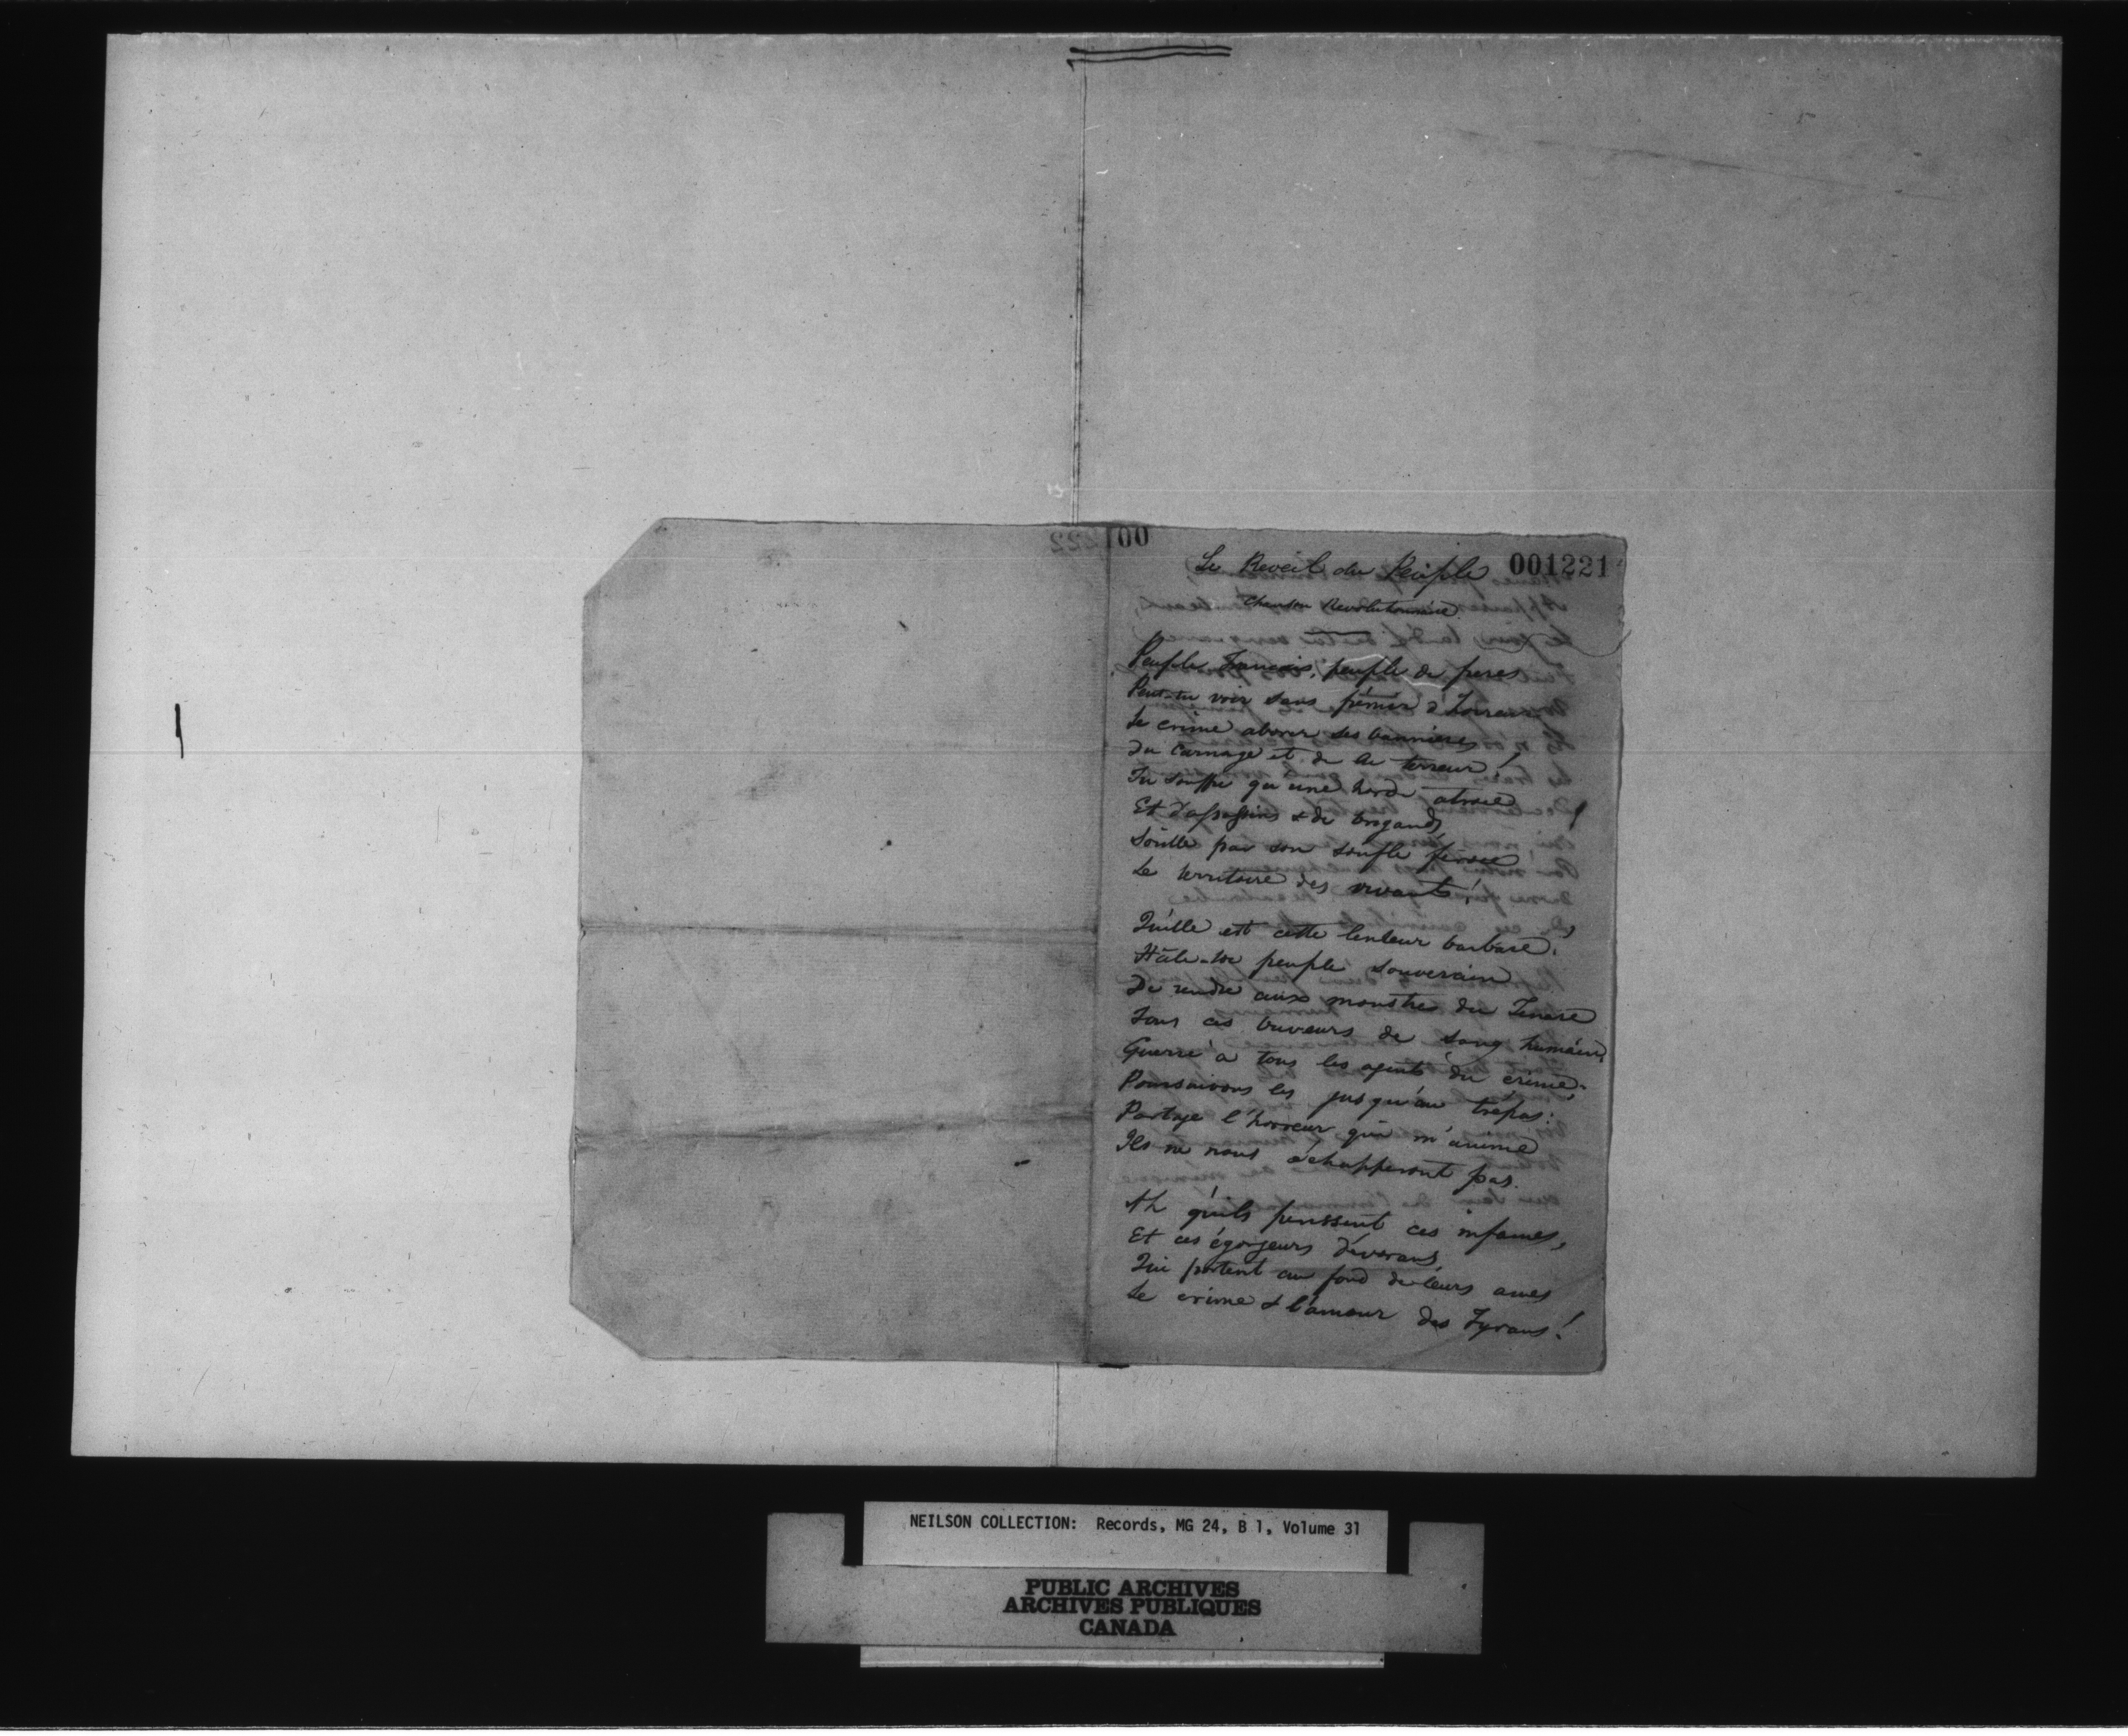 00
001221
Le Reveil du Peuple
Chanson Revolutionnaire
Peuple Francais, peuple de freres
Peut-tu voir sans frémir d'horreur
Le crime aborer les bannieres
Du Carnage et de la terreur!
Tu souffre qu'une horde atroce
Et d'assassins & de brigands
Souille par son soufle féroce
Le territoire des vivants!
Quelle est cette lenteur barbare!
Hâte-toi peuple souverain
De rendre aux monstres du Tenare
Tous ces buveurs de sang humain,
Guerre à tous les agents du crime;
Poursuivons les jusqu'au trépas:
Partage l'horreur qui m'anime
Ils ne nous échapperont pas.
Ah qu'ils périssent ces infames,
Et ces égorgeurs dévorans,
Qui portent au fond de leurs ames
Le crime & l'amour des Tyrans!
NEILSON COLLECTION: Records, MG 24, B 1, Volume 31
PUBLIC ARCHIVES
ARCHIVES PUBLIQUES
CANADA